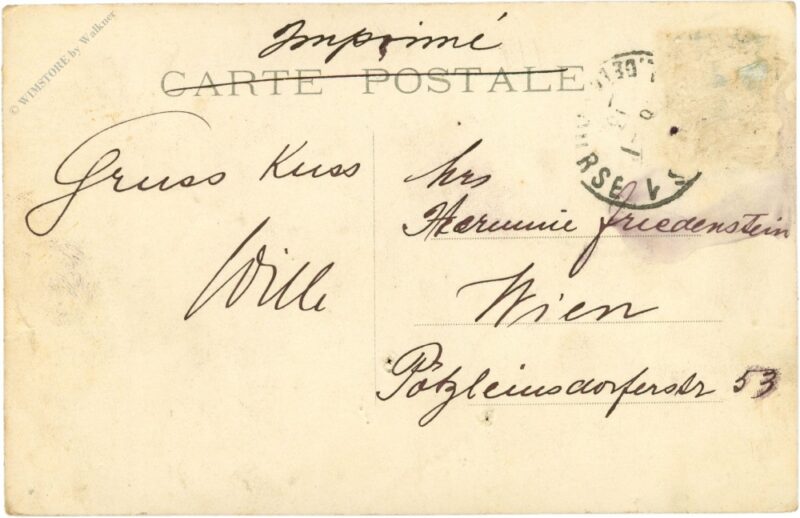 © WIMSTORE by Walkner
Imprimé
CARTE POSTALE
Gruss Kuss
Willi
Mrs
Hermine Friedenstein
Wien
Pötzleinsdorferstr 53